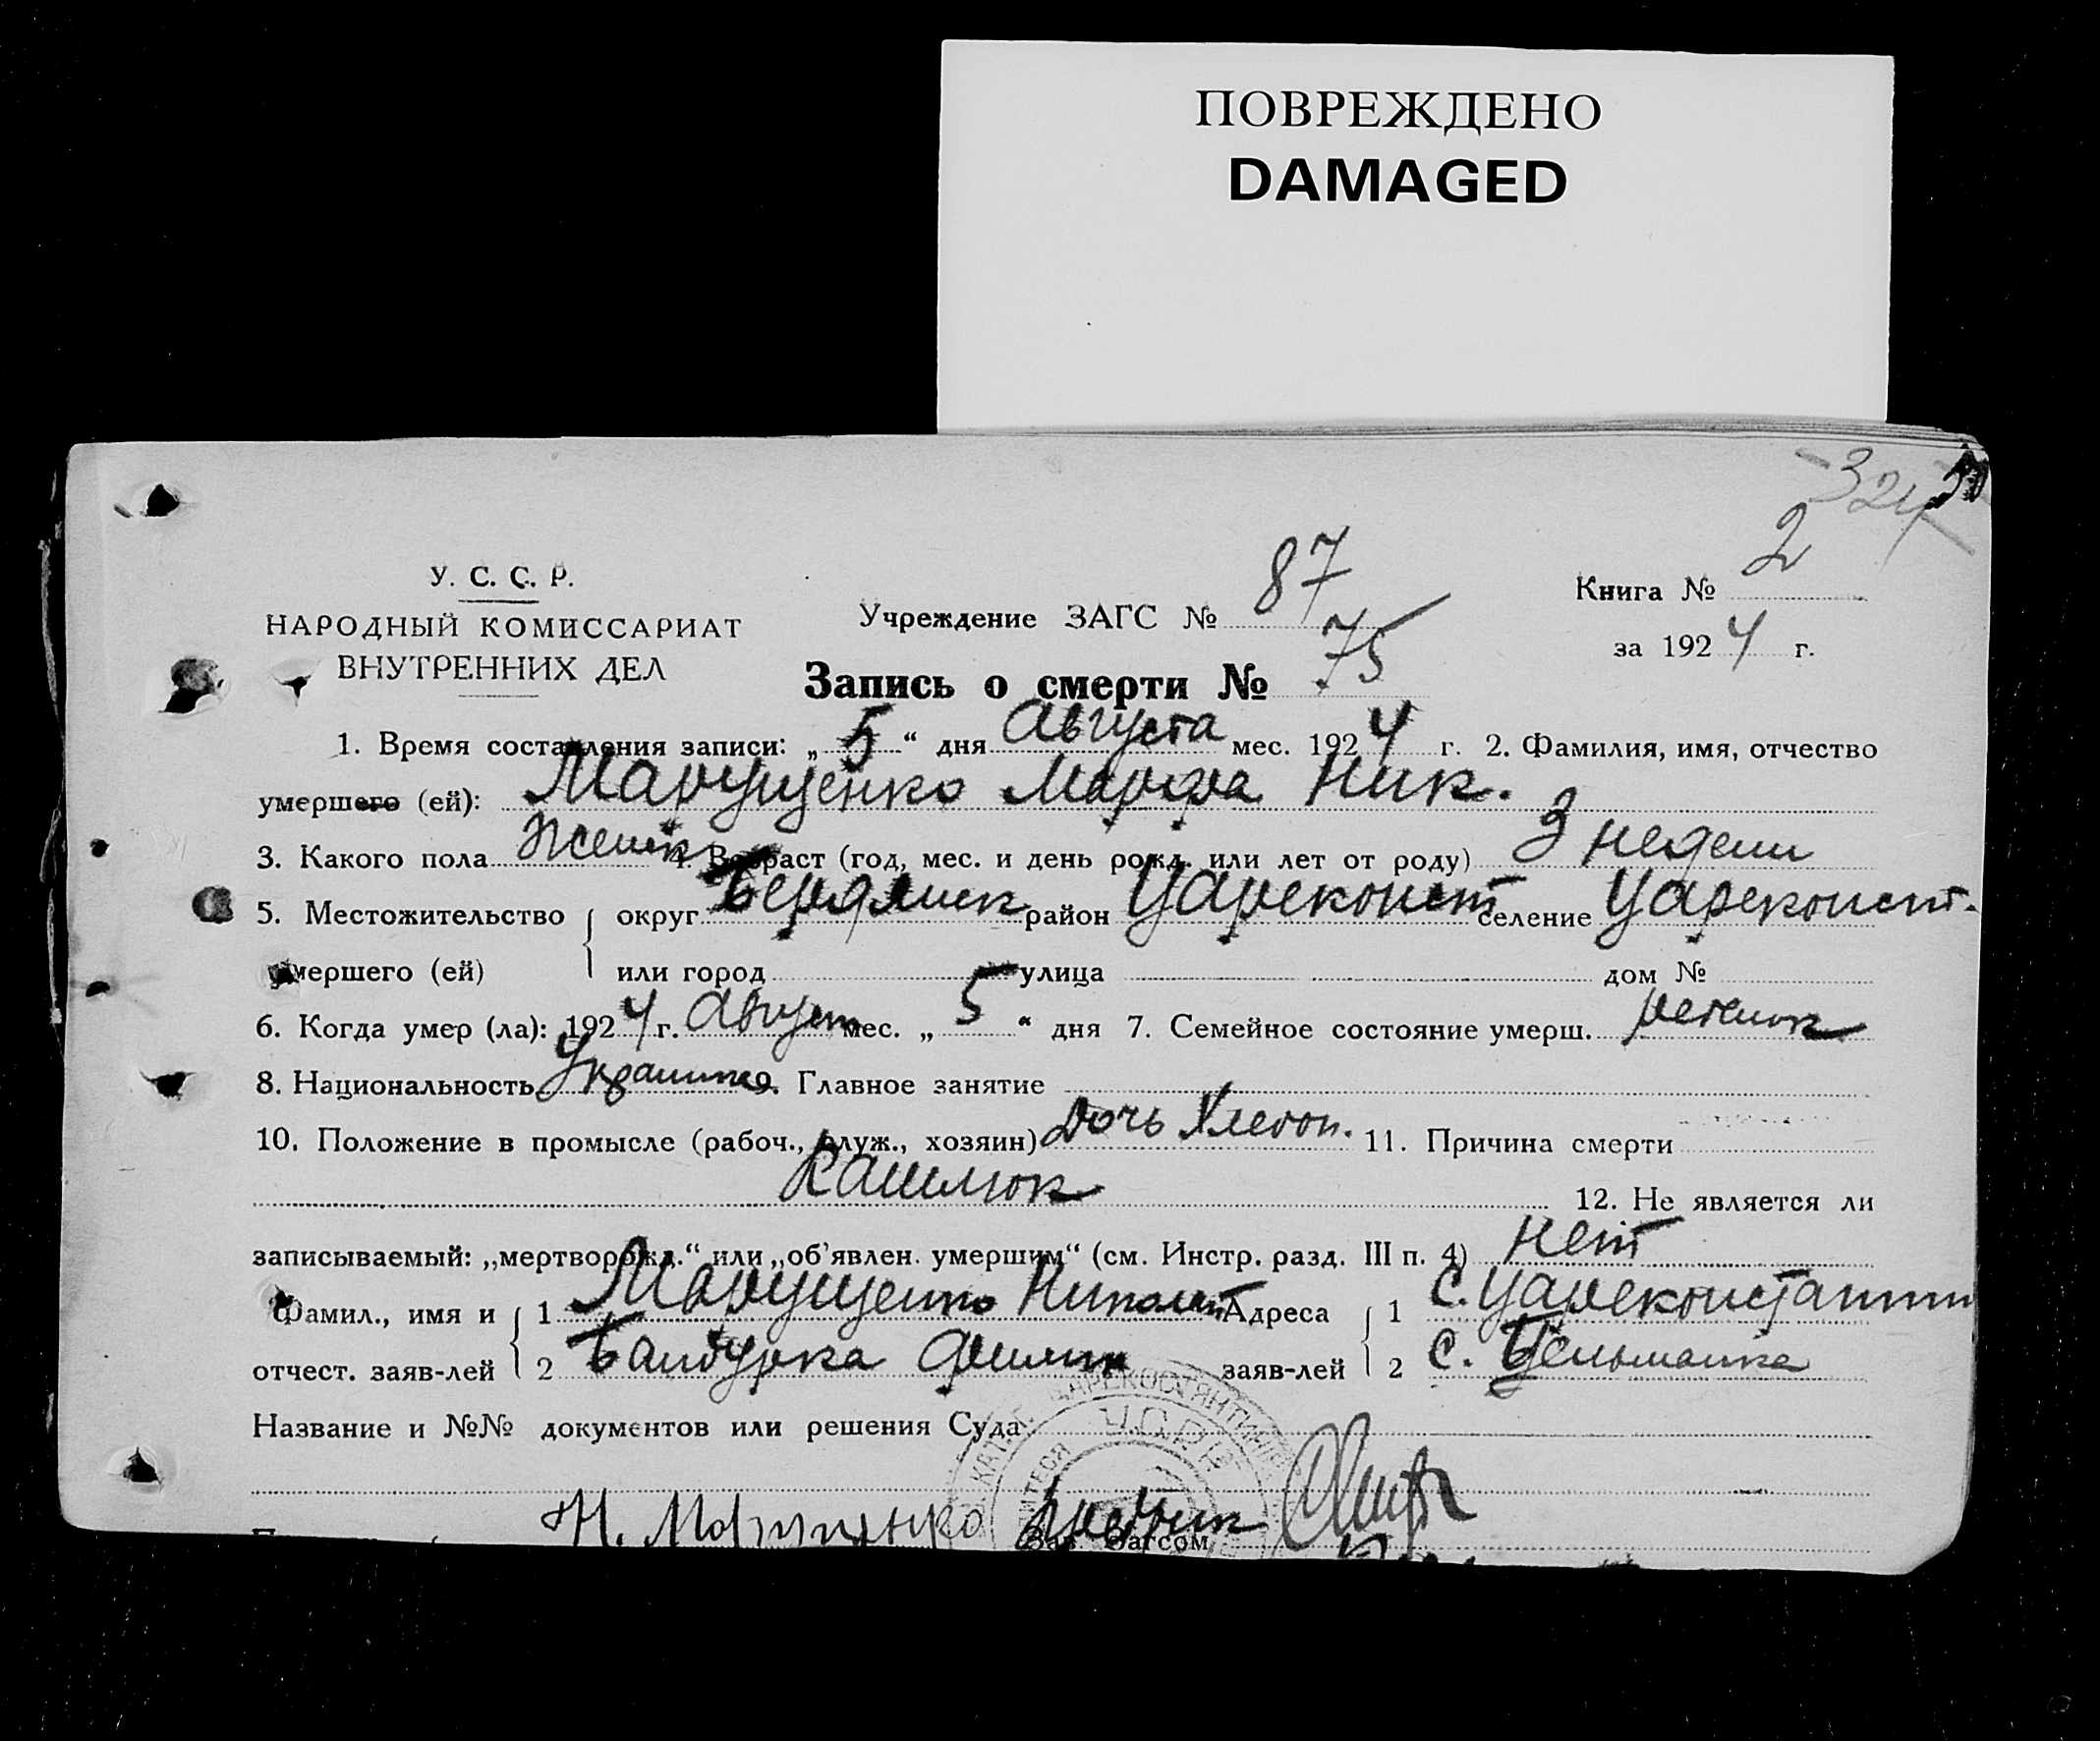 ПОВРЕЖДЕНО
DAMAGED
324
У. С. С. Р.
НАРОДНЫЙ КОМИССАРИАТ
ВНУТРЕННИХ ДЕЛ
Учреждение ЗАГС № 87
Книга № 2
за 1924 г.
Запись о смерти № 75
1. Время составления записи: „5“ дня Августа мес. 1924 г. 2. Фамилия, имя, отчество
умершего (ей): Марущенко Марфа Ник.
3. Какого пола Женск 4. Возраст (год, мес. и день рожд. или лет от роду) 3 недели
5. Местожительство округ Бердянск район Цареконст селение Цареконст.
умершего (ей) или город улица дом №
6. Когда умер (ла): 1924 г. Август мес. „5“ дня 7. Семейное состояние умерш. ребенок
8. Национальность Украинка 9. Главное занятие
10. Положение в промысле (рабоч., служ., хозяин) Дочь Хлебоп. 11. Причина смерти
Кашлюк 12. Не является ли
записываемый: „мертворожд.“ или „об'явлен. умершим“ (см. Инстр. разд. III п. 4) Нет
Фамил., имя и 1 Марущенко Николай Адреса 1 С. Цареконстантин
отчест. заяв-лей 2 Бандурка Филип заяв-лей 2 С.
Название и №№ документов или решения Суда
У.С.Р.Р.
Н. Марущенко
Зав. Загсом